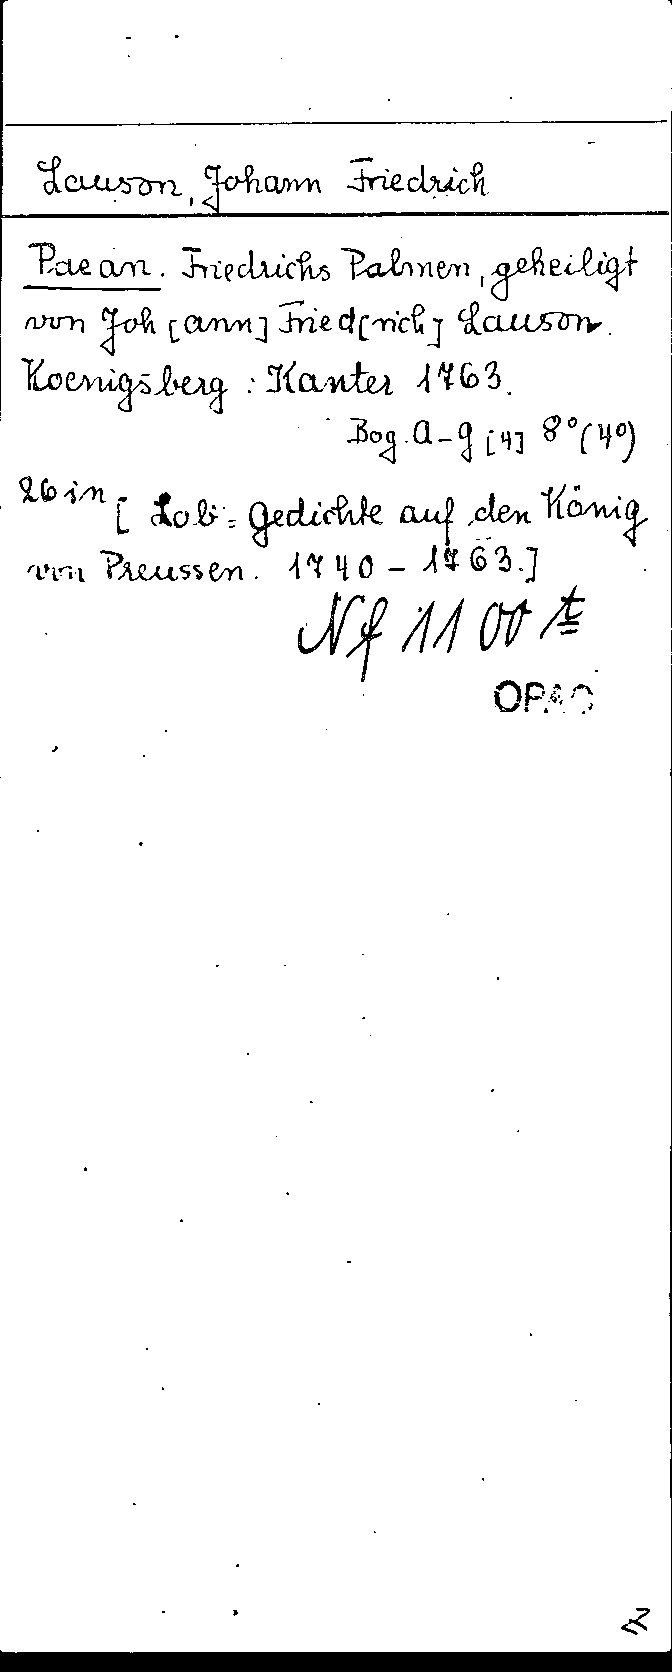 Lauson, Johann Friedrich
Paean. Friedrichs Palmen, geheiligt
von Joh[ann] Fried[rich] Lauson.
Koenigsberg : Kanter 1763.
Bog. A-G [4] 8° (4°)
26 in [Lob-Gedichte auf den König
von Preussen. 1740 - 1763.]
Nf 1100
OPAC